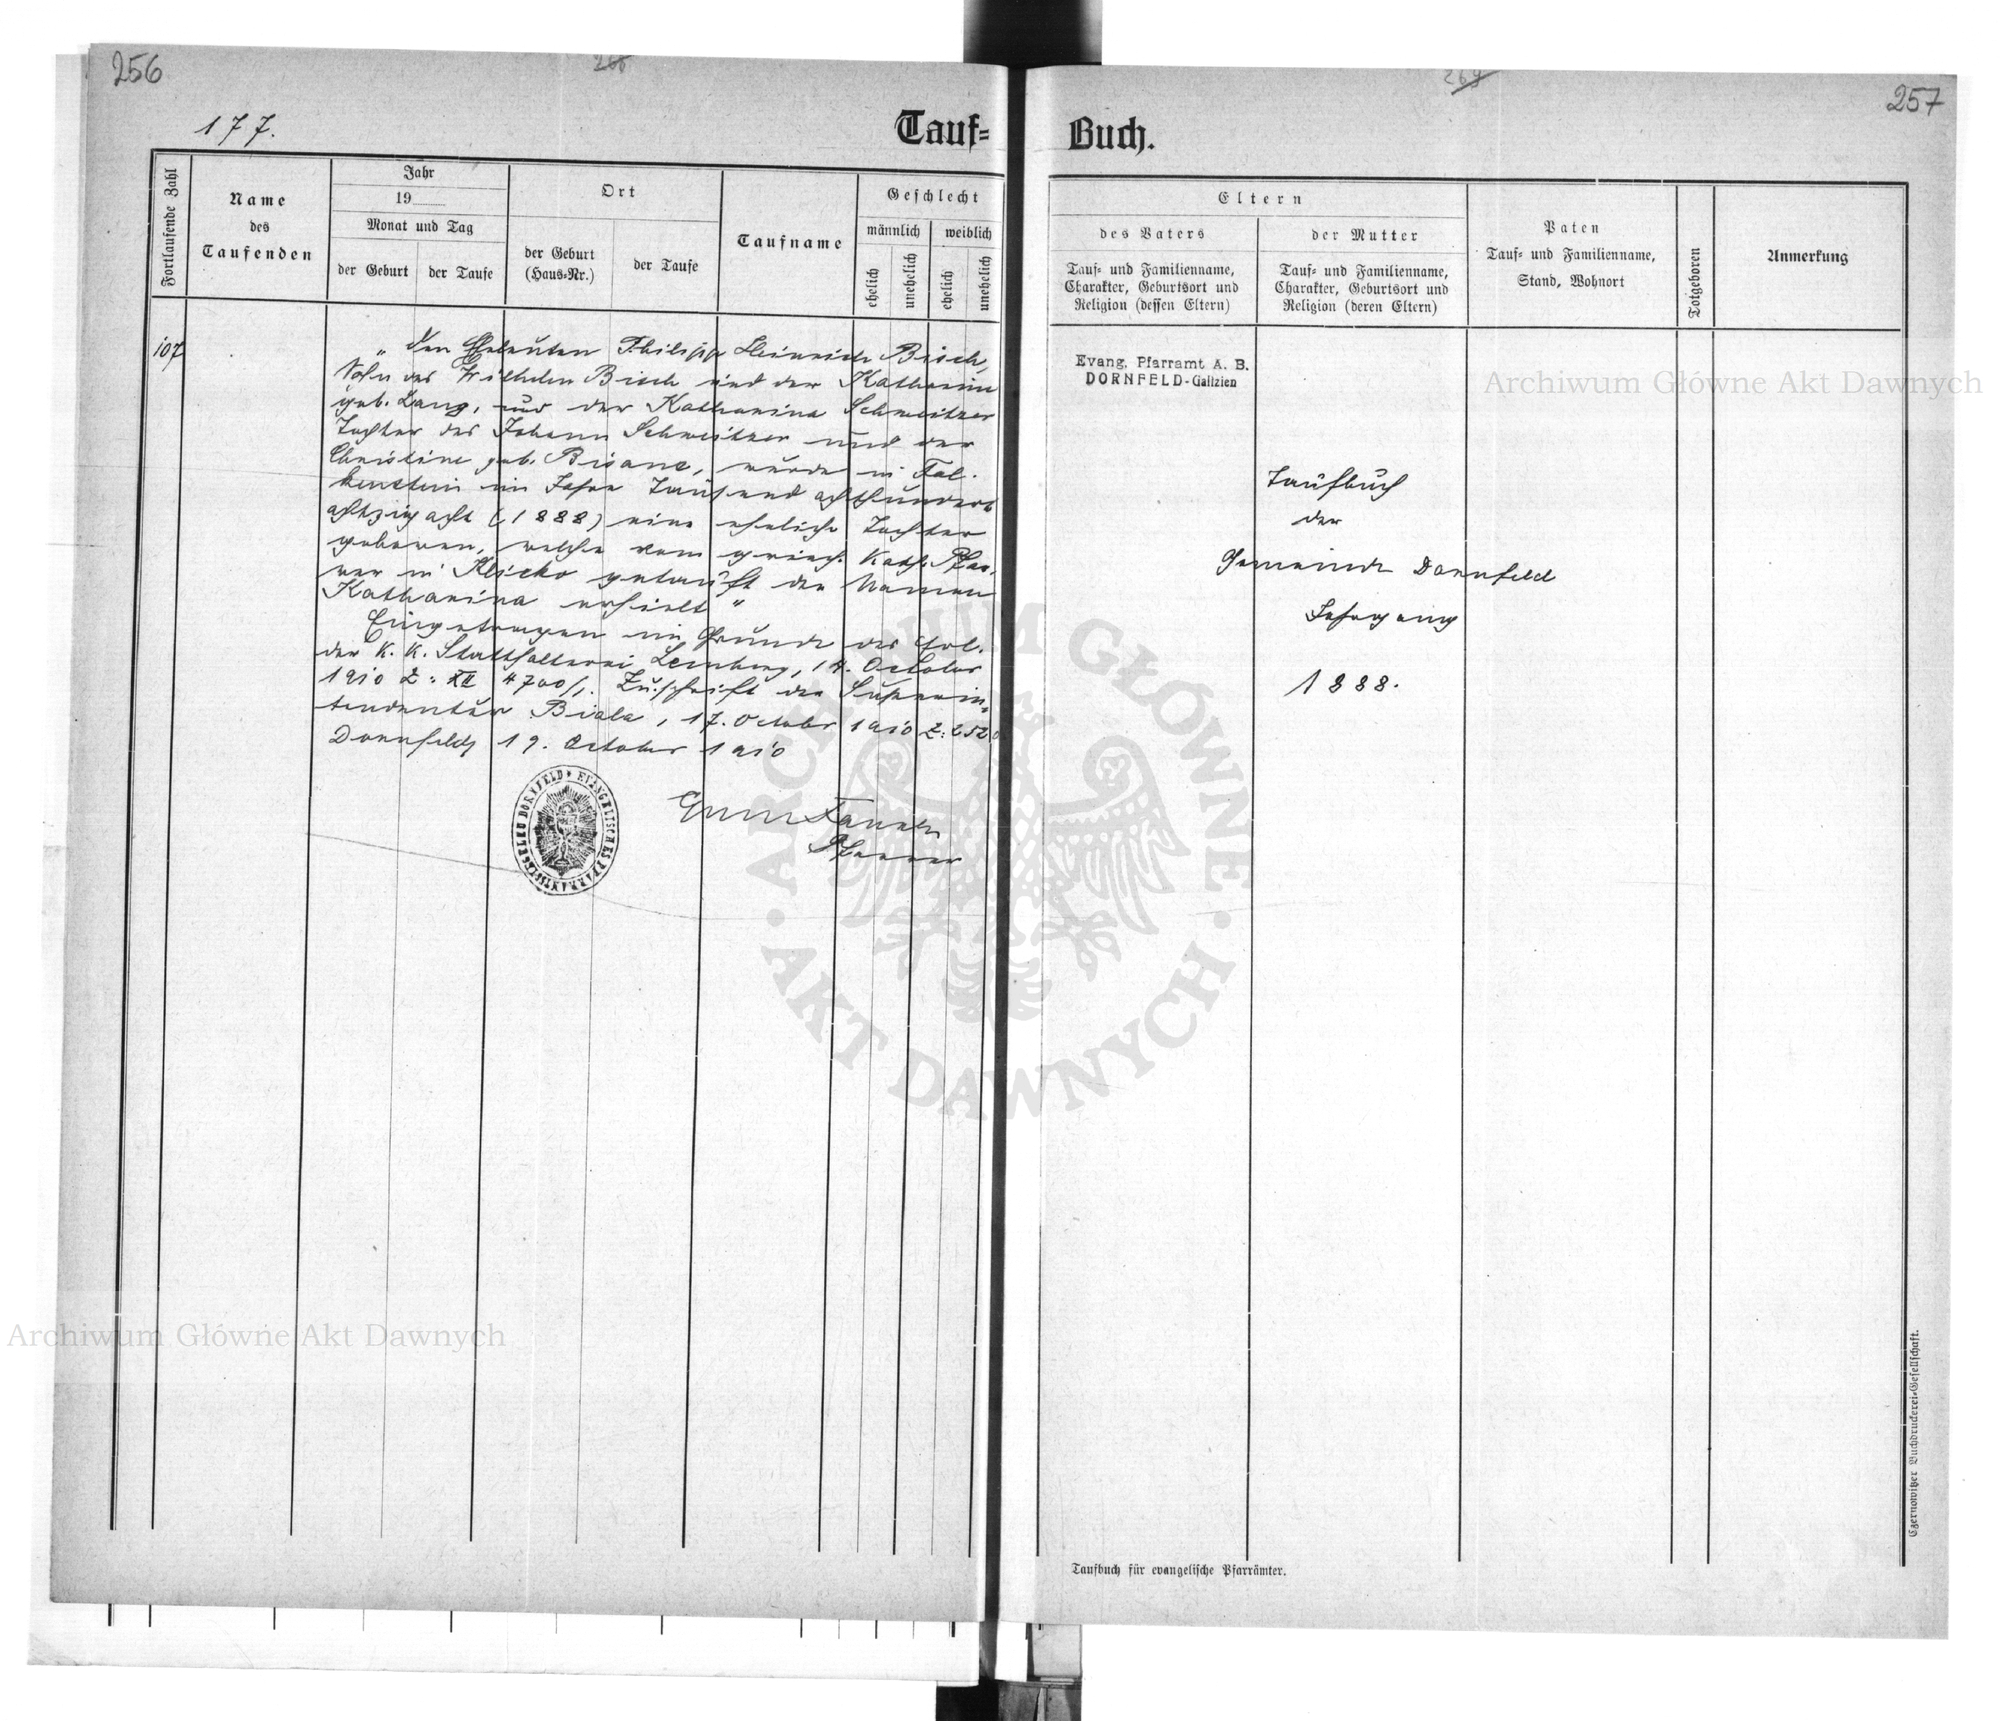 256
266
177.
Tauf=
Fortlaufende Zahl
Name
des
Taufenden
Jahr
19
Monat und Tag
der Geburt
der Taufe
Ort
der Geburt
(Haus=Nr.)
der Taufe
Taufname
Geschlecht
männlich
weiblich
ehelich
unehelich
ehelich
unehelich
107
„ Den Eheleuten Philipp Heinrich Bisch,
Sohn des Wilhelm Bisch und der Katharina
geb. Lang, und der Katharina Schweitzer
Tochter des Johann Schweitzer und der
Christine geb. Bisanz, wurde in Fal-
kenstein im Jahre Tausend achthundert
achtzig acht (1888) eine eheliche Tochter
geboren, welche vom griech. Kath. Pfar-
rer in Klicko getauft den Namen
Katharina erhielt "
Eingetragen im Grunde des Erl.
der K. K. Statthalterei Lemberg, 14. October
1910 Z: XII 4700/1. Zuschrift der Superin-
tendentur Biala, 17. October 1910 Z: 2520
Dornfeld, 19. October 1910
EVANGELISCHES PFARRAMTSSIEGEL ZU DORNFELD
Pfarrer
269
257
Buch.
Eltern
des Vaters
Tauf= und Familienname,
Charakter, Geburtsort und
Religion (dessen Eltern)
der Mutter
Tauf= und Familienname,
Charakter, Geburtsort und
Religion (deren Eltern)
Paten
Tauf= und Familienname,
Stand, Wohnort
Totgeboren
Anmerkung
Evang. Pfarramt A. B.
DORNFELD-Galizien
Taufbuch
der
Gemeinde Dornfeld
Jahrgang
1888.
Archiwum Główne Akt Dawnych
ARCHIWUM GŁÓWNE · AKT DAWNYCH ·
Archiwum Główne Akt Dawnych
Czernowitzer Buchdruckerei=Gesellschaft.
Taufbuch für evangelische Pfarrämter.